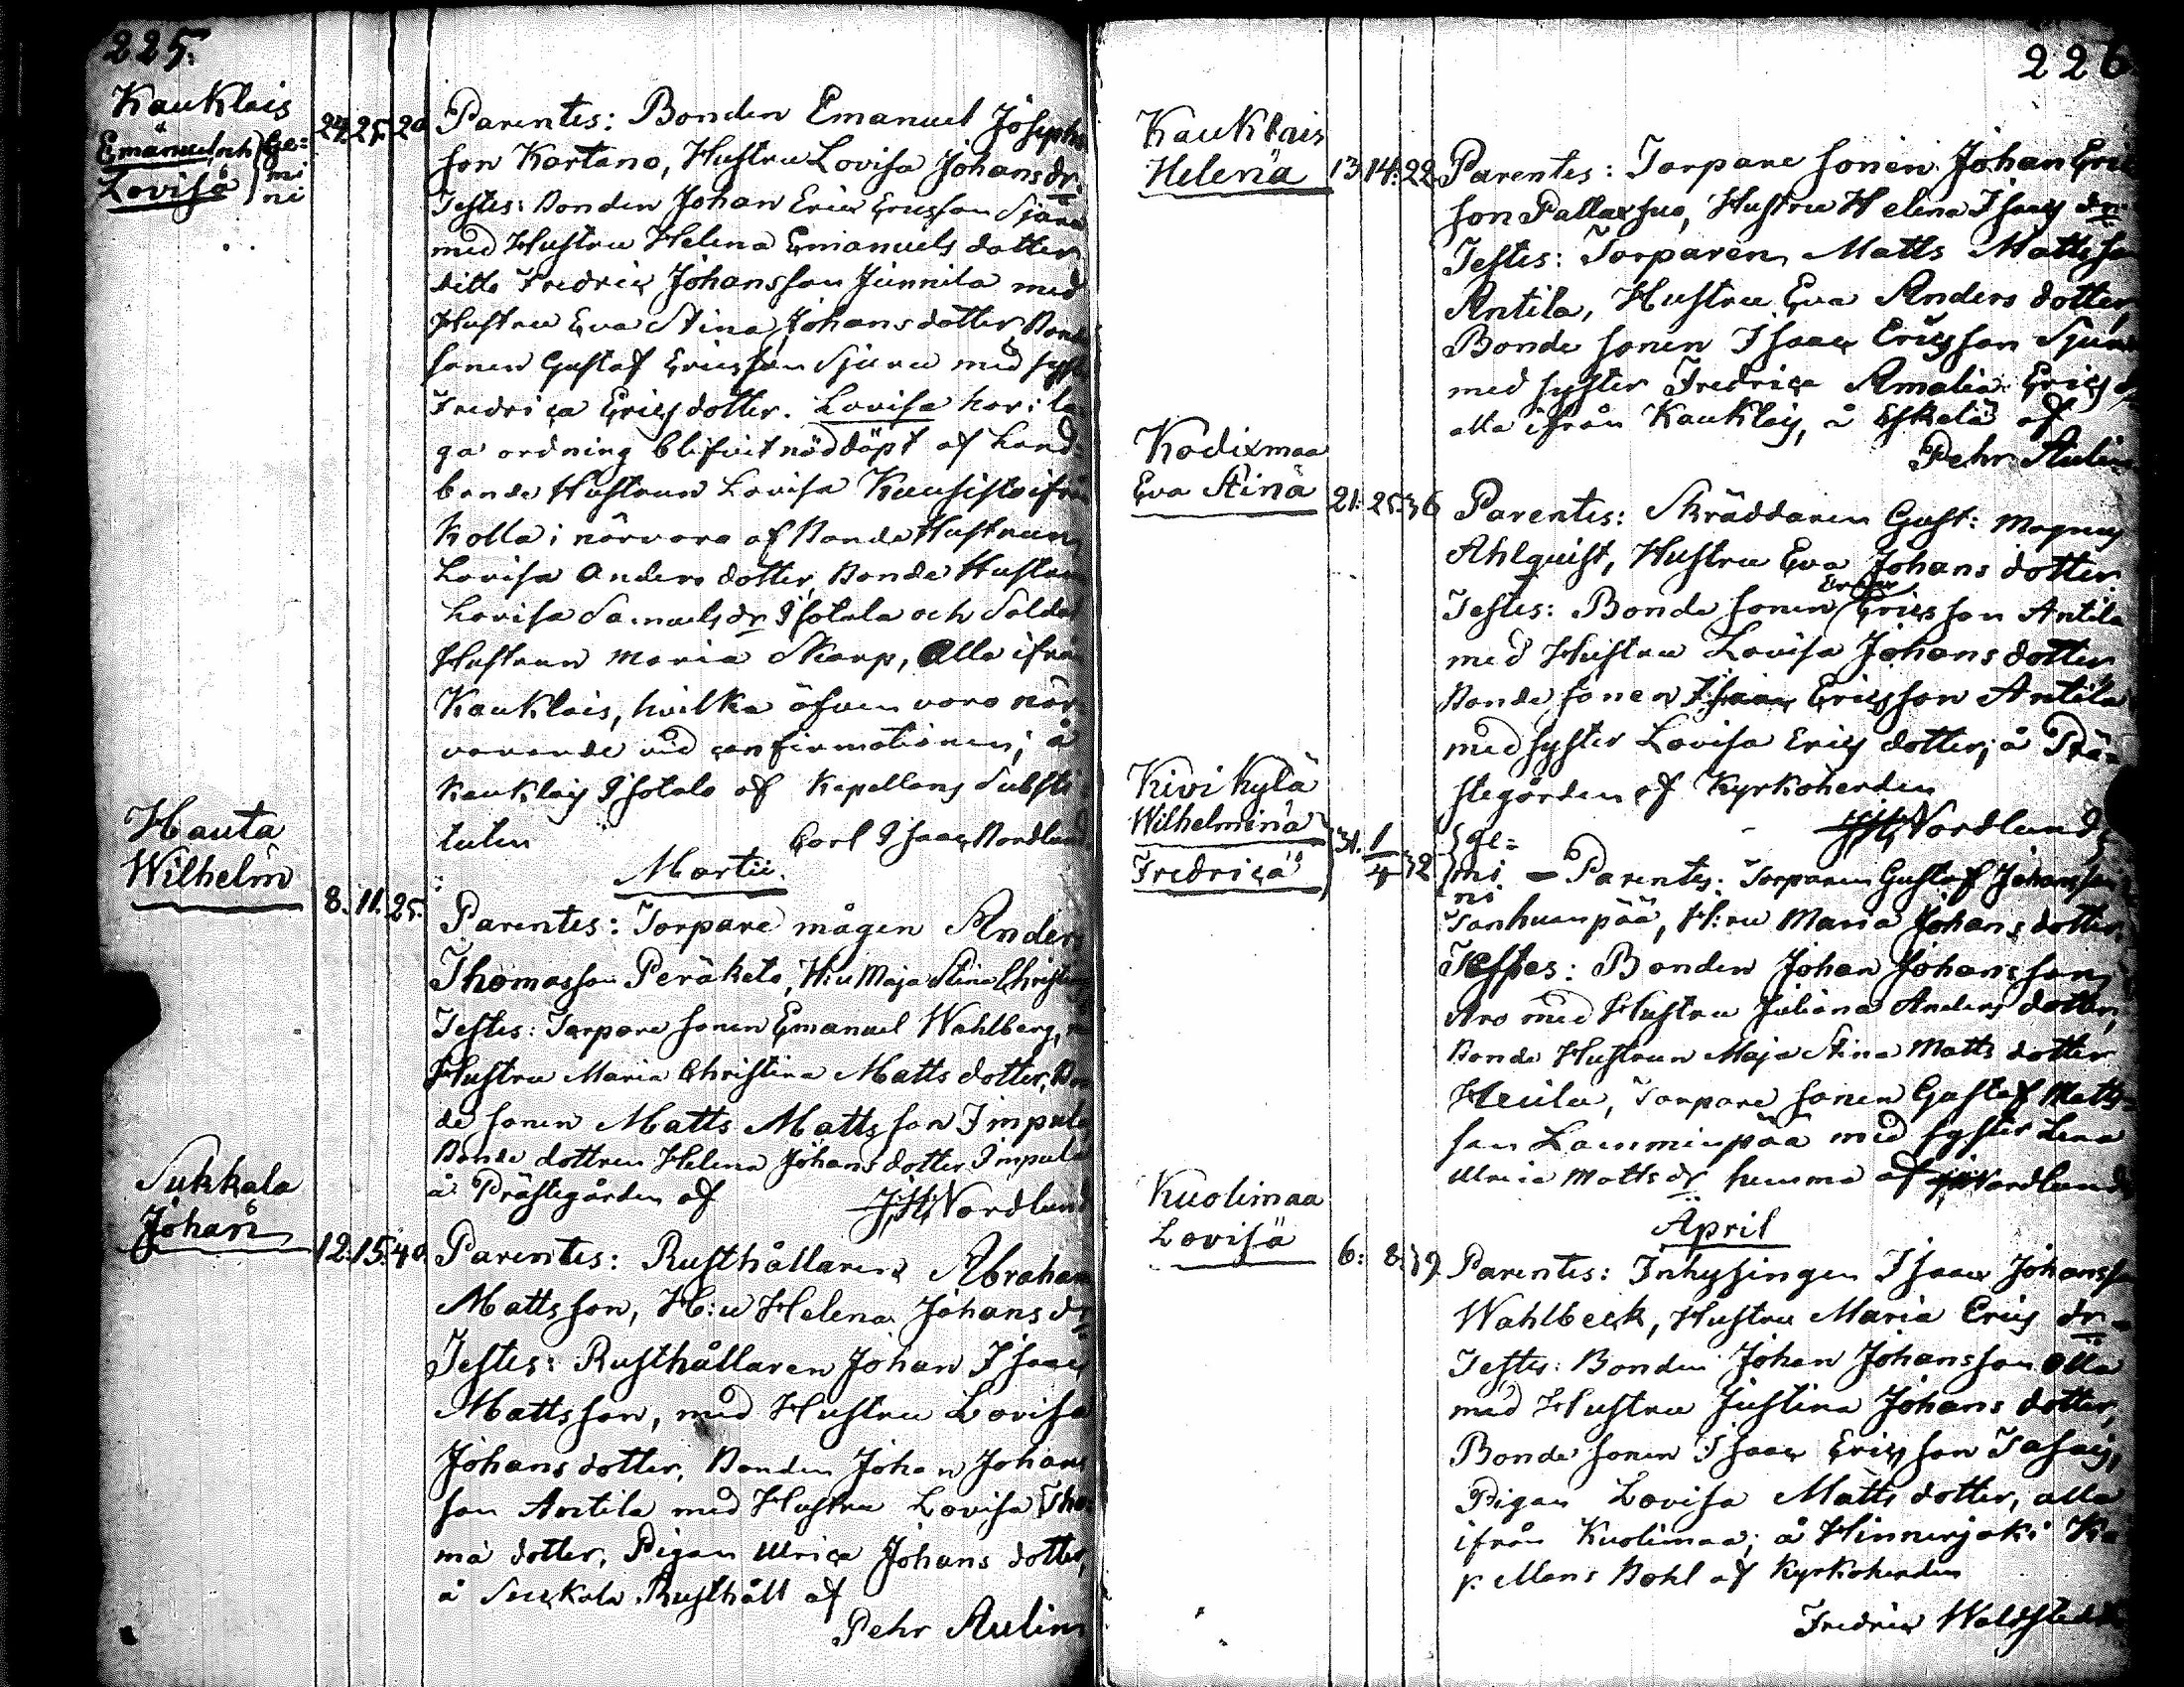 225.
Kauklais
Emanuel och } Ge=
Lovisa } mi
ni
24. 25. 20.
Parentes: Bonden Emanuel Josephs
son Kartano, Hustru Lovisa Johans dr.
Testes: Bonden Johan Eric Ericsson Sjura
med Hustru Helena Emanuels dotter
ditto Fredric Johansson Junnila med
Hustru Eva Stina Johans dotter, Bonde
sonen Gustaf Ericsson Sjuru med syst
Fredrica Erics dotter. Lovisa har i la
ga ordning blifvit nöddöpt af Land=
bonde Hustrun Lovisa Kuusisto ifrån
Kolla i närvaro af Bonde Hustrun
Lovisa Anders dotter, Bonde Hustrun
Lovisa Samuels dr Isotalo och Soldat
Hustrun Maria Skarp, Alla ifrån
Kauklais, hvilka äfven voro när
varande vid confirmationen; å
Kauklais Isotalo af Kapellans Substi
tuten Carl Isaac Nordlund
Martii.
Hauta
Wilhelm
8. 11. 25.
Parentes: Torpare mågen Anders
Thomasson Peräketo, H:u Maja Stina Christ
Testes: Torpare sonen Emanuel Wahlberg,
Hustru Maria Christina Matts dotter, Bon
de sonen Matts Mattsson Impola
Bonde dottren Helena Johans dotter Impola
å Prästegården af J.H. Nordlund
Sukkala
Johan
12. 15. 40.
Parentes: Rusthållaren Abraham
Mattsson, H:u Helena Johans dr
Testes: Rusthållaren Johan Isaac
Mattsson, med Hustru Lovisa
Johans dotter, Bonden Johan Johans
son Antila med Hustru Lovisa Tho
mä dotter, Pigan Ulrica Johans dotter,
å Suckala Rusthåll af
Pehr Aulin
226
Kauklais
Helena
13. 14. 22.
Parentes: Torpare sonen Johan Eric
son Pallarsuo, Hustru Helena Isaacs dr
Testes: Torparen Matts Mattsson
Antila, Hustru Eva Anders dotter,
Bonde sonen Isaac Ericsson Sjuru
med syster Fredrica Amalia Erics d
alla ifrån Kauklais, å Eskelä af
Pehr Aulin
Kodixmaa
Eva Stina
21. 25. 36
Parentes: Skräddaren Gust: Magnus
Ahlquist, Hustru Eva Johans dotter.
Testes: Bonde sonen Ericsson Antila
med Hustru Lovisa Johans dotter
Bonde sonen Isaac Ericsson Antila
med syster Lovisa Erics dotter; å Prä=
stegården af Kyrkoherden
J.H. Nordlund
Kivikylä
Wilhelmina
Fredrica
31. 1/4 32
} ge=
} mi
ni
= Parentes: Torparen Gustaf Johansson
Tanhuanpää, H:ru Maria Johans dotter.
Testes: Bonden Johan Johansson
Aro med Hustru Juliana Anders dotter,
Bonde Hustrun Maja Stina Matts dotter
Heiula, Torpare sonen Gustaf Matts=
son Lamminpää med syster Lena
Ulrica Matts dr hemma af J.H. Nordlund
April
Kuolimaa
Lovisa
6. 8. 39
Parentes: Inhysingen Isaac Johansson
Wahlbeck, Hustru Maria Erics dr=
Testes: Bonden Johan Johansson Olla
med Hustru Justina Johans dotter,
Bonde sonen Isaac Ericsson Tasais,
Pigan Lovisa Matts dotter, alla
ifrån Kuolimaa; å Hinnerjoki Ka
pellans Bohl af Kyrkoherden
Fredric Waldstedt